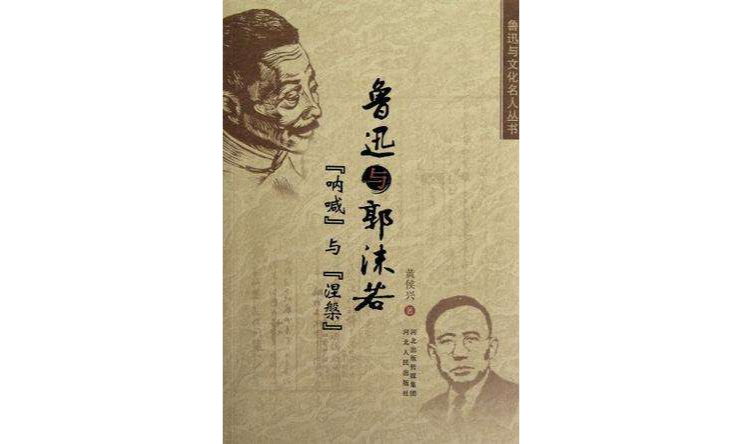 鲁迅与文化名人丛书
鲁迅与郭沫若
『呐喊』与『涅槃』
黄侯兴 著
河北出版传媒集团
河北人民出版社